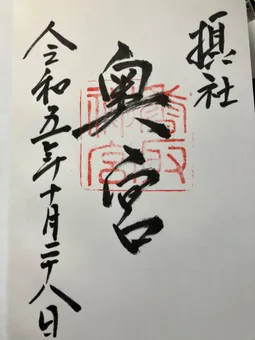 摂社
奥宮
香取神宮
令和五年十月二十八日